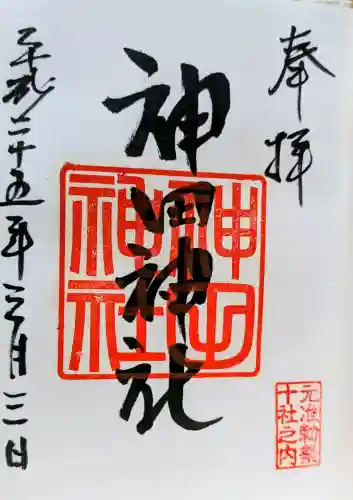 奉拝
神田神社
神田神社
平成二十五年三月三日
元准勅祭
十社之内